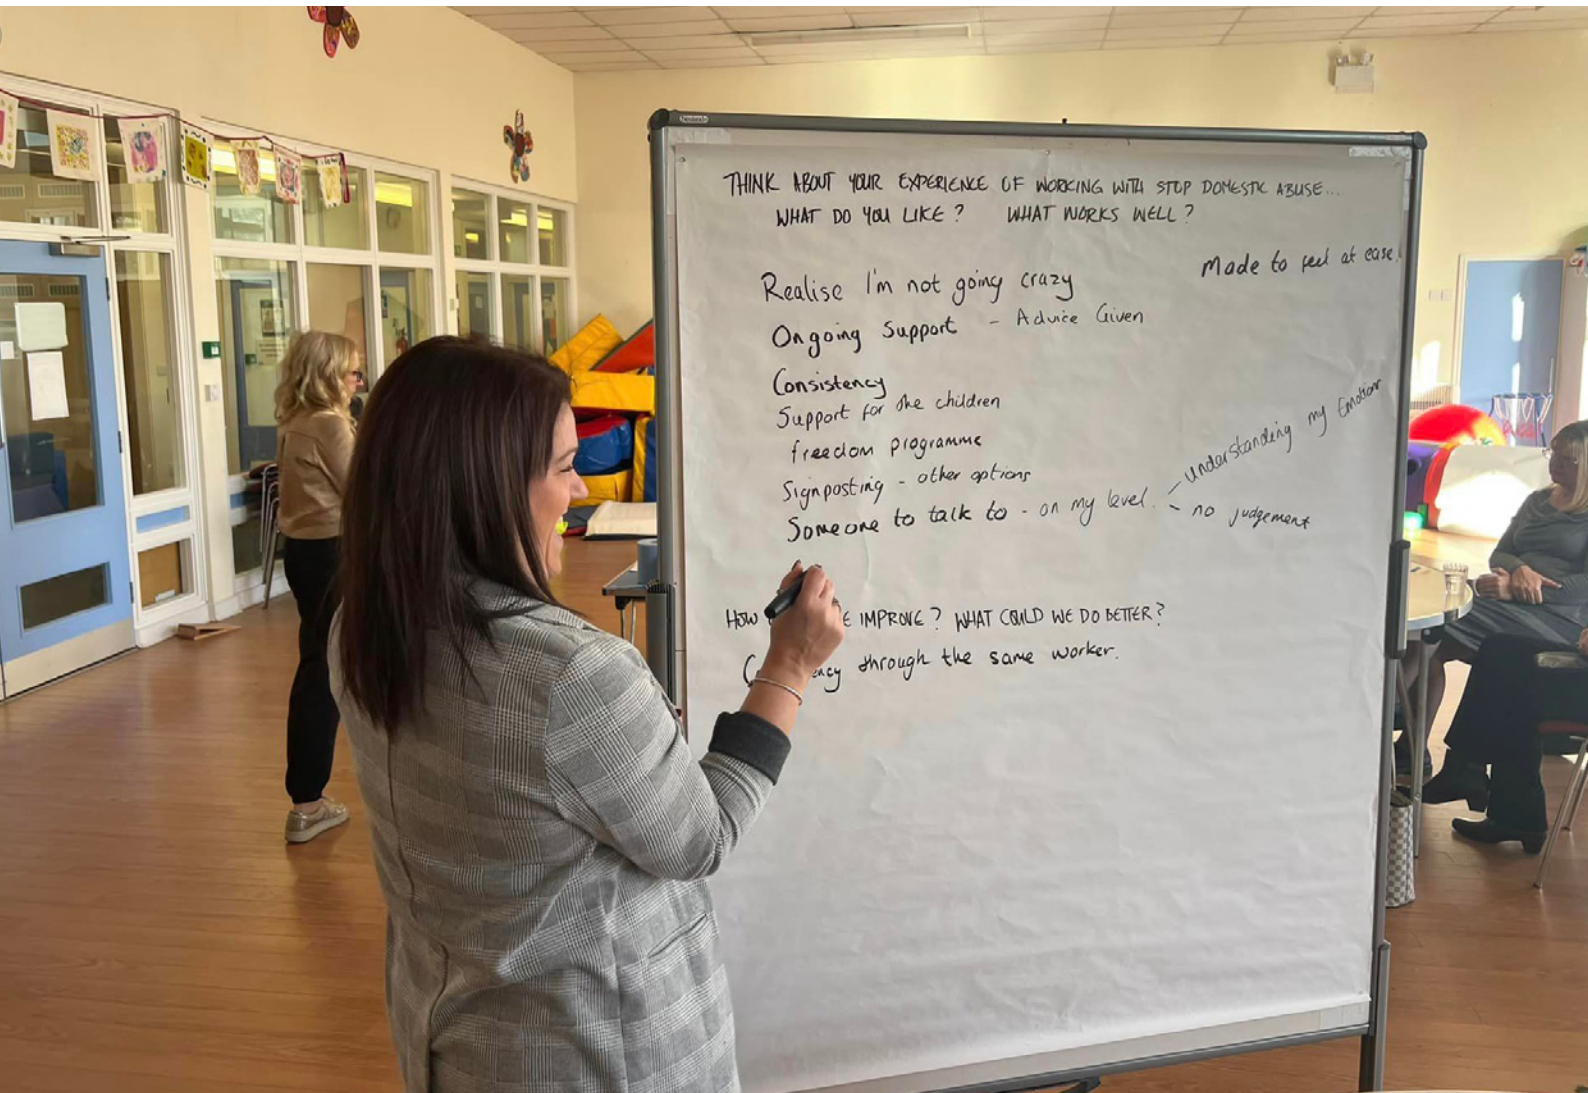 THINK ABOUT YOUR EXPERIENCE OF WORKING WITH STOP DOMESTIC ABUSE...
WHAT DO YOU LIKE? WHAT WORKS WELL?
Made to feel at ease.
Realise I'm not going crazy
Ongoing Support - Advice Given
Consistency
Support for the children
freedom programme
Signposting - other options
Someone to talk to - on my level. - understanding my Emotions
- no judgement
HOW E IMPROVE? WHAT COULD WE DO BETTER?
through the same worker.